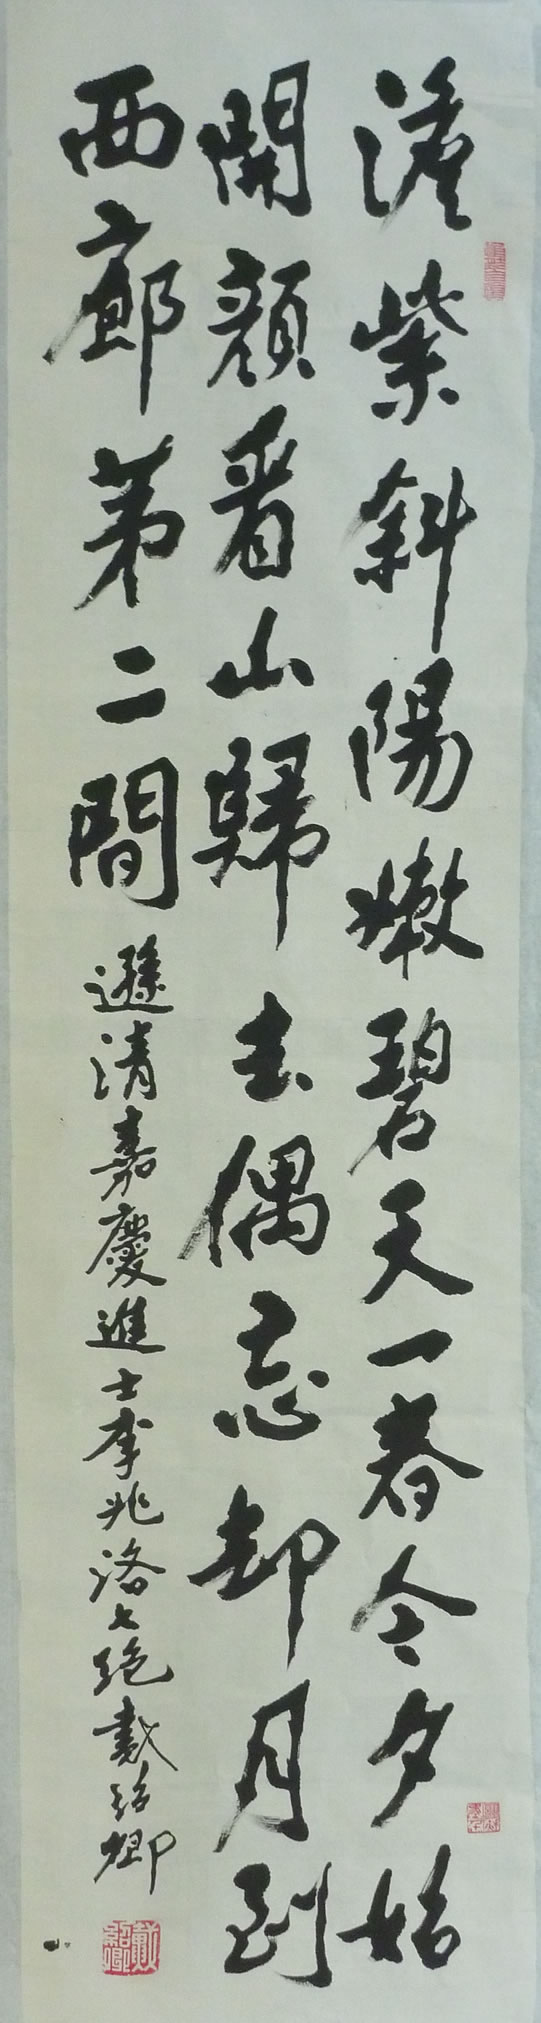 澹紫斜陽嫩碧天一春今夕始
開顏看山歸去偶忘卻月到
西廊第二間
遜清嘉慶進士李兆洛七絕戴紹卿
戴紹卿